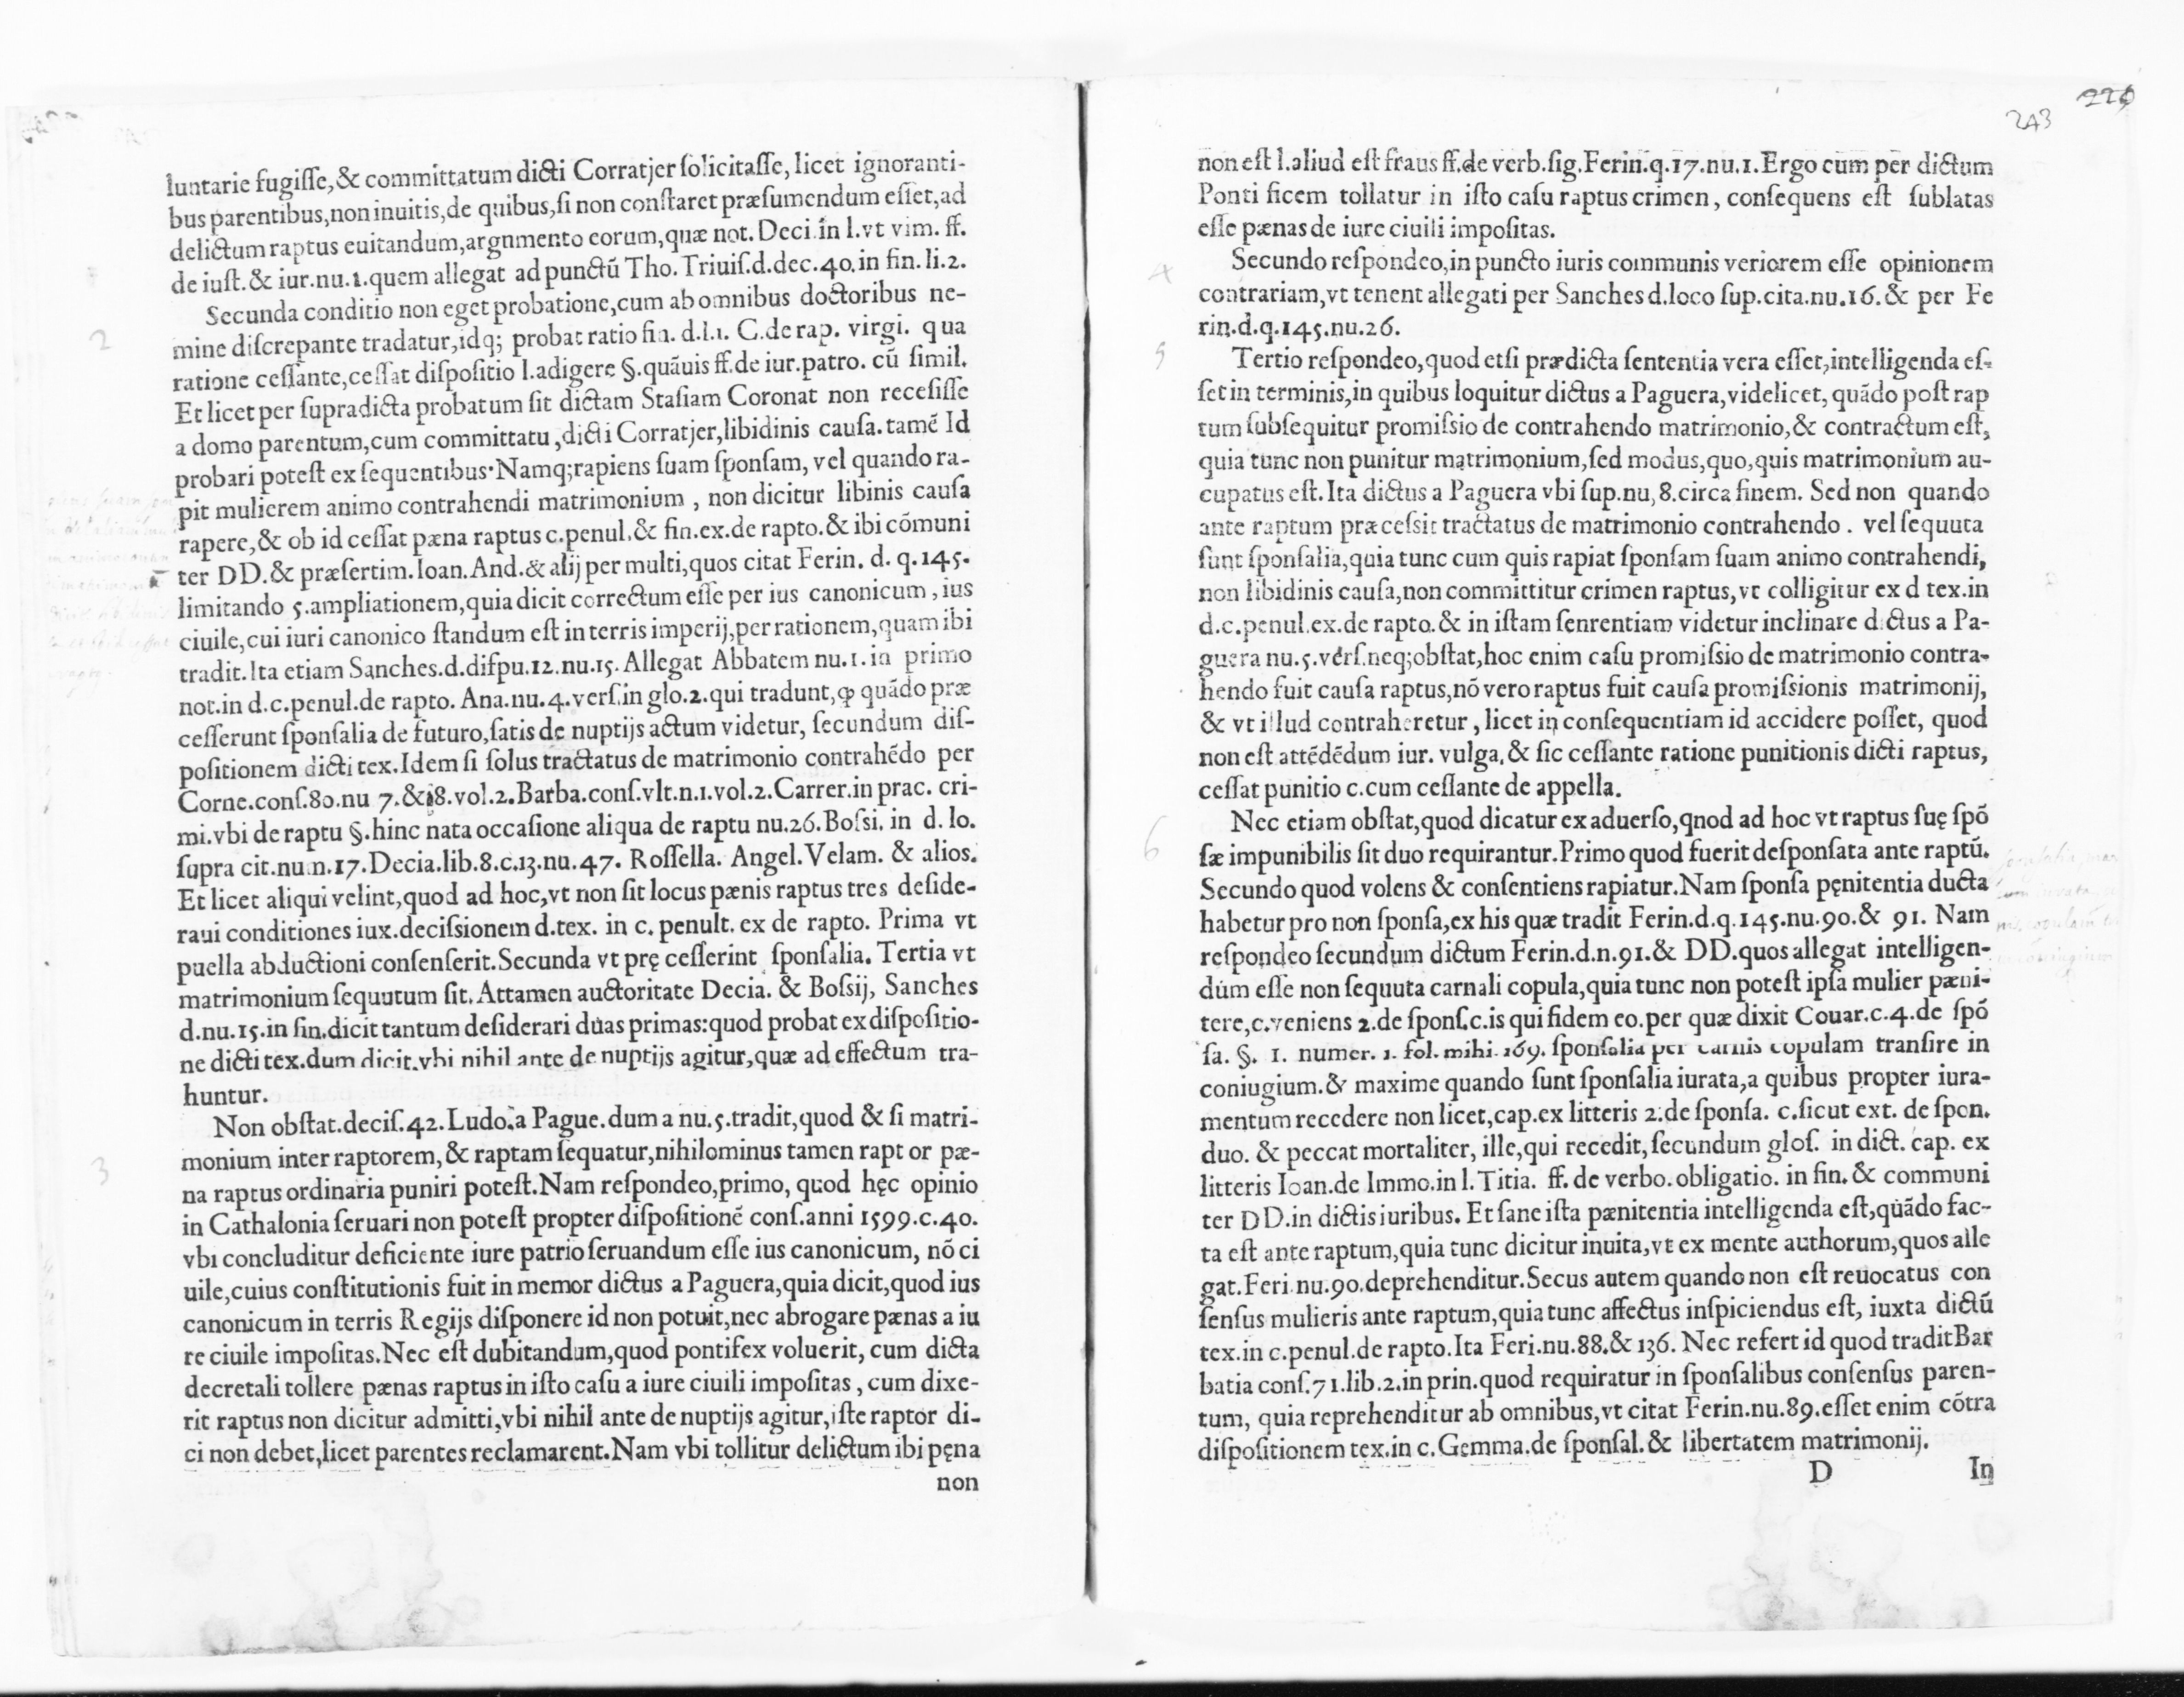 luntarie fugiſſe,& committatum dicti Corratjer ſolicitaſſe, licet ignoranti-
bus parentibus,non inuitis,de quibus,ſi non conſtaret præſumendum eſſet,ad
delictum raptus euitandum,argnmento eorum,quæ not. Deci. in l.vt vim. ff.
de iuſt.& iur.nu.1.quem allegat ad punctũ Tho. Triuiſ.d.dec.40.in fin.li.2.
Secunda conditio non eget probatione,cum ab omnibus doctoribus ne-
mine diſcrepante tradatur,idq; probat ratio fin. d.l.1. C.de rap. virgi. qua
ratione ceſſante,ceſſat diſpoſitio l.adigere §.quãuis ff.de iur.patro. cũ ſimil.
Et licet per ſupradicta probatum ſit dictam Staſiam Coronat non receſiſſe
a domo parentum,cum committatu,dicti Corratjer,libidinis cauſa.tamẽ Id
probari poteſt ex ſequentibus·Namq;rapiens ſuam ſponſam, vel quando ra-
pit mulierem animo contrahendi matrimonium , non dicitur libinis cauſa
rapere,& ob id ceſſat pæna raptus c.penul.& fin.ex.de rapto.& ibi cõmuni
ter DD.& præſertim.Ioan.And.& alij per multi,quos citat Ferin. d. q.145.
limitando 5.ampliationem,quia dicit correctum eſſe per ius canonicum,ius
ciuile,cui iuri canonico ſtandum eſt in terris imperij,per rationem,quam ibi
tradit.Ita etiam Sanches.d.diſpu.12.nu.15.Allegat Abbatem nu.1.in primo
not.in d.c.penul.de rapto. Ana.nu.4.verſ.in glo.2.qui tradunt,ꝙ quãdo præ
ceſſerunt ſponſalia de futuro,ſatis de nuptijs actum videtur, ſecundum diſ-
poſitionem dicti tex.Idem ſi ſolus tractatus de matrimonio contrahẽdo per
Corne.conſ.80.nu 7.&18.vol.2.Barba.conſ.vlt.n.1.vol.2.Carrer.in prac. cri-
mi.vbi de raptu §.hinc nata occaſione aliqua de raptu nu.26.Boſsi. in d. lo.
ſupra cit.num.17.Decia.lib.8.c.13.nu.47. Roſſella. Angel.Velam. & alios.
Et licet aliqui velint,quod ad hoc,vt non ſit locus pænis raptus tres deſide-
raui conditiones iux.deciſsionem d.tex. in c. penult. ex de rapto. Prima vt
puella abductioni conſenſerit.Secunda vt prę ceſſerint ſponſalia. Tertia vt
matrimonium ſequutum ſit. Attamen auctoritate Decia. & Boſsij, Sanches
d.nu.15.in fin.dicit tantum deſiderari duas primas:quod probat ex diſpoſitio-
ne dicti tex.dum dicit.vbi nihil ante de nuptijs agitur,quæ ad effectum tra-
huntur.
Non obſtat.deciſ.42.Ludo.a Pague.dum a nu.5.tradit,quod & ſi matri-
monium inter raptorem,& raptam ſequatur,nihilominus tamen rapt or pæ-
na raptus ordinaria puniri poteſt.Nam reſpondeo,primo, quod hęc opinio
in Cathalonia ſeruari non poteſt propter diſpoſitionẽ conſ.anni 1599.c.40.
vbi concluditur deficiente iure patrio ſeruandum eſſe ius canonicum, nõ ci
uile,cuius conſtitutionis fuit in memor dictus a Paguera,quia dicit,quod ius
canonicum in terris Regijs diſponere id non potuit,nec abrogare pænas a iu
re ciuile impoſitas.Nec eſt dubitandum,quod pontifex voluerit, cum dicta
decretali tollere pænas raptus in iſto caſu a iure ciuili impoſitas , cum dixe-
rit raptus non dicitur admitti,vbi nihil ante de nuptijs agitur,iſte raptor di-
ci non debet,licet parentes reclamarent.Nam vbi tollitur delictum ibi pęna
non
243
229
non eſt l.aliud eſt fraus ff.de verb.ſig.Ferin.q.17.nu.1.Ergo cum per dictum
Ponti ficem tollatur in iſto caſu raptus crimen, conſequens eſt ſublatas
eſſe pænas de iure ciuili impoſitas.
4
Secundo reſpondeo,in puncto iuris communis veriorem eſſe opinionem
contrariam,vt tenent allegati per Sanches d.loco ſup.cita.nu.16.& per Fe
rin.d.q.145.nu.26.
5
Tertio reſpondeo,quod etſi prædicta ſententia vera eſſet,intelligenda eſ-
ſet in terminis,in quibus loquitur dictus a Paguera,videlicet, quãdo poſt rap
tum ſubſequitur promiſsio de contrahendo matrimonio,& contractum eſt,
quia tunc non punitur matrimonium,ſed modus,quo,quis matrimonium au-
cupatus eſt. Ita dictus a Paguera vbi ſup.nu,8.circa finem. Sed non quando
ante raptum præceſsit tractatus de matrimonio contrahendo . vel ſequuta
ſunt ſponſalia,quia tunc cum quis rapiat ſponſam ſuam animo contrahendi,
non libidinis cauſa,non committitur crimen raptus,vt colligitur ex d tex.in
d.c.penul.ex.de rapto.& in iſtam ſenrentiam videtur inclinare dictus a Pa-
guera nu.5.verſ.neq;obſtat,hoc enim caſu promiſsio de matrimonio contra-
hendo fuit cauſa raptus,nõ vero raptus fuit cauſa promiſsionis matrimonij,
& vt illud contraheretur, licet in conſequentiam id accidere poſſet, quod
non eſt attẽdẽdum iur. vulga.& ſic ceſſante ratione punitionis dicti raptus,
ceſſat punitio c.cum ceſſante de appella.
6
Nec etiam obſtat,quod dicatur ex aduerſo,qnod ad hoc vt raptus ſuę ſpõ
ſæ impunibilis ſit duo requirantur.Primo quod fuerit deſponſata ante raptũ.
Secundo quod volens & conſentiens rapiatur.Nam ſponſa pęnitentia ducta
habetur pro non ſponſa,ex his quæ tradit Ferin.d.q.145.nu.90.& 91. Nam
reſpondeo ſecundum dictum Ferin.d.n.91.& DD.quos allegat intelligen-
dum eſſe non ſequuta carnali copula,quia tunc non poteſt ipſa mulier pæni-
tere,c.veniens 2.de ſponſ.c.is qui fidem eo.per quæ dixit Couar.c.4.de ſpõ
ſa. §. 1. numer. 1. fol. mihi. 169. ſponſalia per carnis copulam tranſire in
coniugium.& maxime quando ſunt ſponſalia iurata,a quibus propter iura-
mentum recedere non licet,cap.ex litteris 2.de ſponſa. c.ſicut ext. de ſpon.
duo. & peccat mortaliter, ille,qui recedit, ſecundum gloſ. in dict. cap. ex
litteris Ioan.de Immo.in l.Titia. ff. de verbo.obligatio. in fin.& communi
ter DD.in dictis iuribus. Et ſane iſta pænitentia intelligenda eſt,quãdo fac-
ta eſt ante raptum,quia tunc dicitur inuita,vt ex mente authorum,quos alle
gat.Feri.nu.90.deprehenditur.Secus autem quando non eſt reuocatus con
ſenſus mulieris ante raptum,quia tunc affectus inſpiciendus eſt, iuxta dictũ
tex.in c.penul.de rapto.Ita Feri.nu.88.& 136. Nec refert id quod tradit Bar
batia conſ.71.lib.2.in prin.quod requiratur in ſponſalibus conſenſus paren-
tum, quia reprehenditur ab omnibus,vt citat Ferin.nu.89.eſſet enim cõtra
diſpoſitionem tex.in c.Gemma.de ſponſal.& libertatem matrimonij.
D In